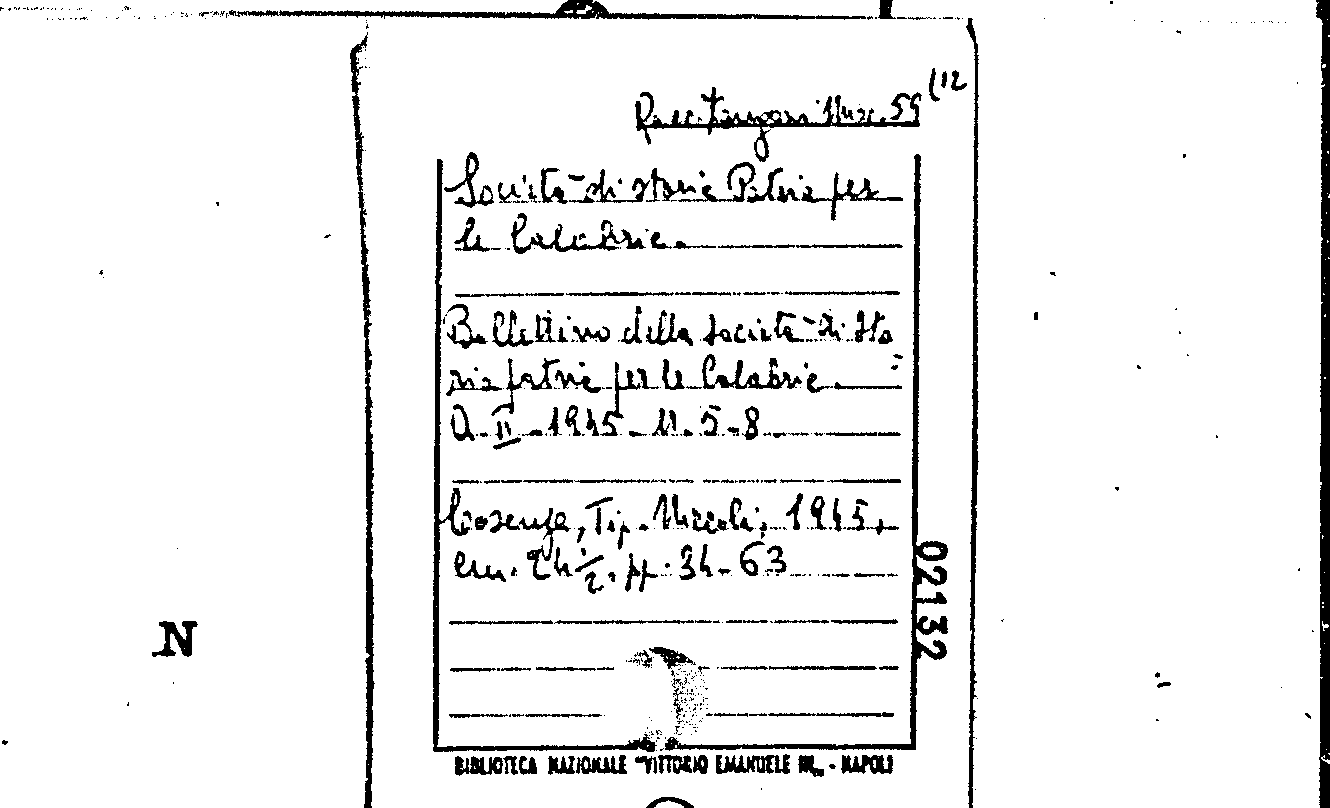 Racc. Misc. 59 (12
Società di storia Patria per
la Calabria.
Bollettino della Società di Sto
ria patria per la Calabria.
A. II - 1945 - N. 5-8
Cosenza, Tip. 1945,
cm. 24 1/2. pp. 34-63
02132
N
BIBLIOTECA NAZIONALE "VITTORIO EMANUELE III" - NAPOLI